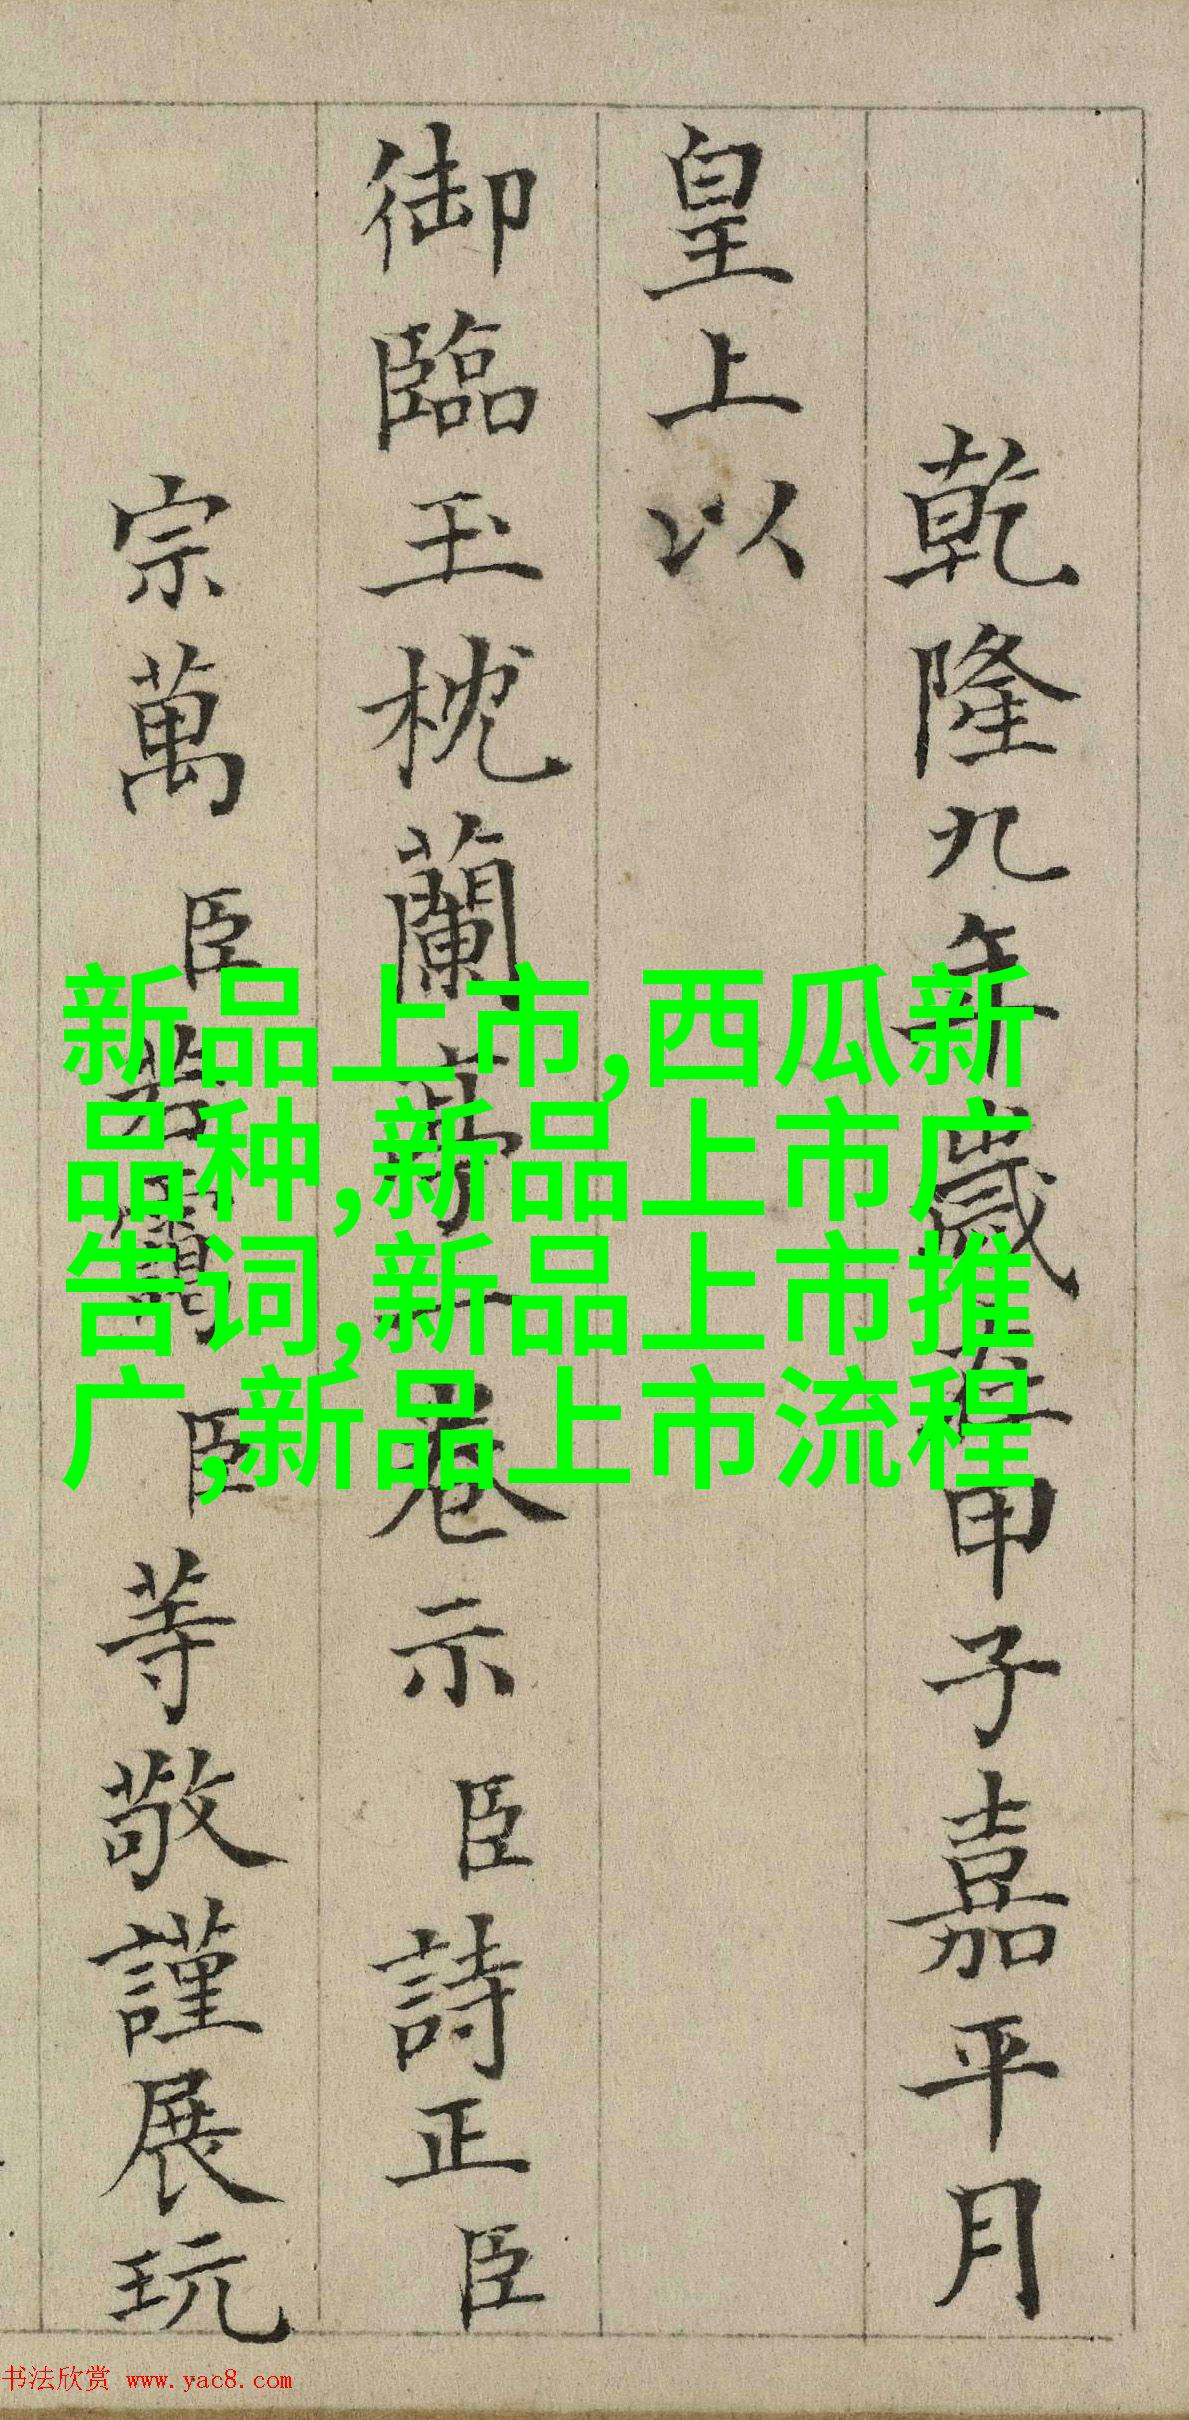 乾隆九年歲在甲子嘉平月
皇上以
御臨玉枕蘭亭一卷示臣詩正臣
宗萬臣若靄臣等敬謹展玩
新品上市,西瓜新
品种,新品上市广
告词,新品上市推
广,新品上市流程
书法欣赏 www.yac8.com